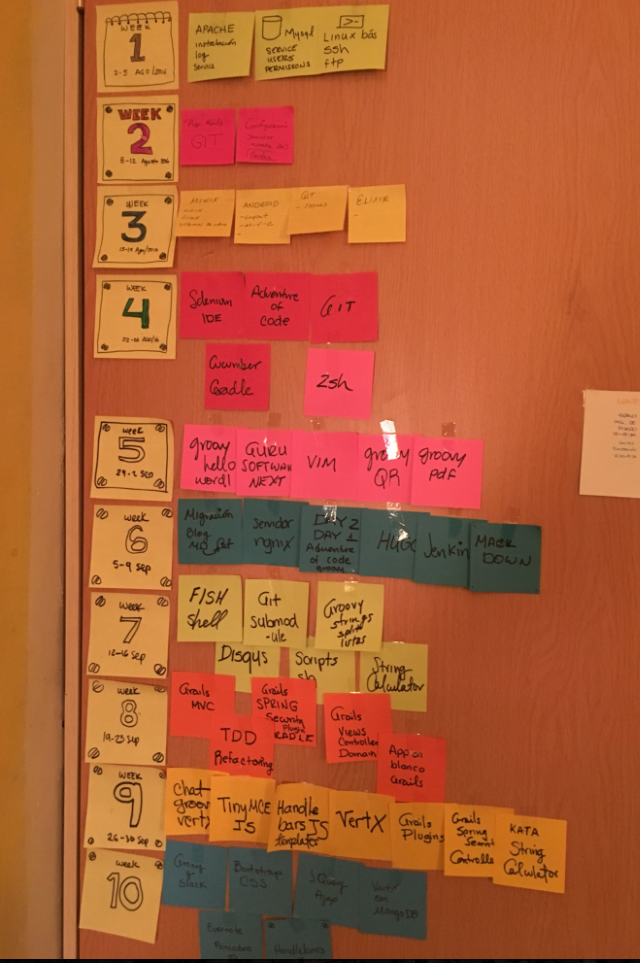 WEEK
1
APACHE
instalación
log
service
Mysql
SERVICE
USERS
PERMISSIONS
Linux bás
ssh
ftp
WEEK
2
8-12 Agosto
GIT
WEEK
3
ANDROID
GIT
ELIXIR
WEEK
4
Selenium
IDE
Adventure
of
code
GIT
Cucumber
Gradle
Zsh
week
5
29-2 sep
groovy
hello
word!
GURU
SOFTWAR
NEXT
VIM
groovy
QR
groovy
Pdf
week
6
5-9 sep
Migración
Blog
ngnix
DAY 2
DAY 1
Adventure
of code
groovy
HUGO
Jenkin
MARK
DOWN
week
7
12-16 sep
FISH
shell
Git
submod
-ule
Groovy
strings
split
listas
Disqus
Scripts
sh
String
Calculator
week
8
19-23 sep
Grails
MVC
Grails
SPRING
Security
Plugin
TDD
Refactoring
Grails
Views
Controller
Domain
App en
blanco
Grails
WEEK
9
26-30 sep
chat
groov
vertx
TinyMCE
JS
Handle
bars JS
templates
VertX
Grails
Plugins
Grails
Spring
Securit
Controlle
KATA
String
Calculator
week
10
Slack
Bootstrap
CSS
JQuery
Ajax
MongoDB
Evernote
Handlebars